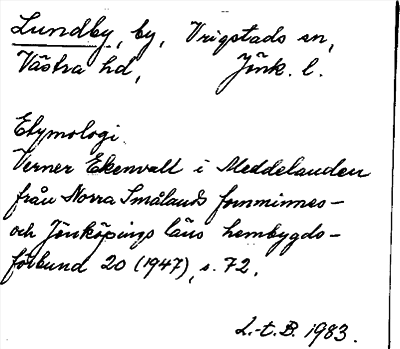 Lundby, by, Vrigstads sn,
Västra hd, Jönk. l.
Etymologi.
Verner Ekenvall i Meddelanden
från Norra Smålands fornminnes-
och Jönköpings läns hembygds-
förbund 20 (1947), s. 72.
L.-t. B. 1983.